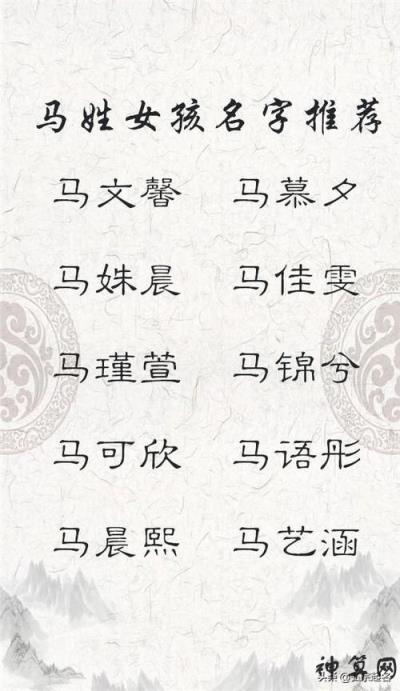 马姓女孩名字推荐
马文馨 马慕夕
马姝晨 马佳雯
马瑾萱 马锦兮
马可欣 马语彤
马晨熙 马艺涵
神算网
头条